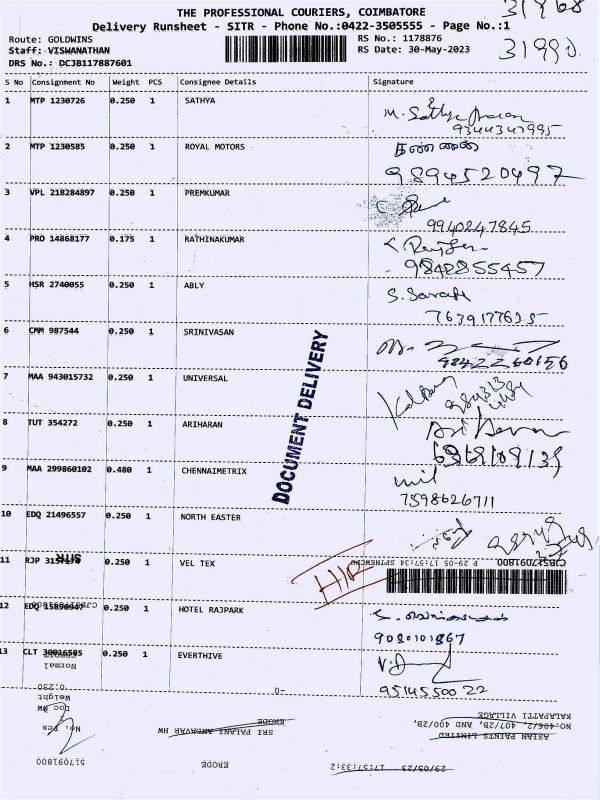 31968
31990
THE PROFESSIONAL COURIERS, COIMBATORE
Delivery Runsheet - SITR - Phone No.:0422-3505555 - Page No.:1
Route: GOLDWINS
RS No.: 1178876
Staff: VISWANATHAN
RS Date: 30-May-2023
DRS No.: DCJB117887601
S No Consignment No Weight PCS Consignee Details Signature
1 MTP 1230726 0.250 1 SATHYA
9344347995
2 MTP 1230585 0.250 1 ROYAL MOTORS
9894520497
3 VPL 218284897 0.250 1 PREMKUMAR
9940247845
4 PRO 14868177 0.175 1 RATHINAKUMAR
9842855457
5 HSR 2740055 0.250 1 ABLY
7639177635
6 CMM 987544 0.250 1 SRINIVASAN
9842260156
7 MAA 943015732 0.250 1 UNIVERSAL
8 TUT 354272 0.250 1 ARIHARAN
9 MAA 299860102 0.480 1 CHENNAIMETRIX
7598626711
DOCUMENT DELIVERY
10 EDQ 21496557 0.250 1 NORTH EASTER
SITR
11 RJP 0.250 1 VEL TEX
CJB517091800
12 EDQ 15890947 0.250 1 HOTEL RAJPARK
9080101867
13 CLT 30016585 0.250 1 EVERTHIVE
9514550022
Normal
0.250
Weight
Doc HW
No. Pcs
517091800
SRI PALANI ANDAVAR HW
ERODE
ERODE
ASIAN PAINTS LIMITED
NO.406/2, 407/2B, AND 400/2B,
KALAPATTI VILLAGE
29/05/23 17:57:33:2